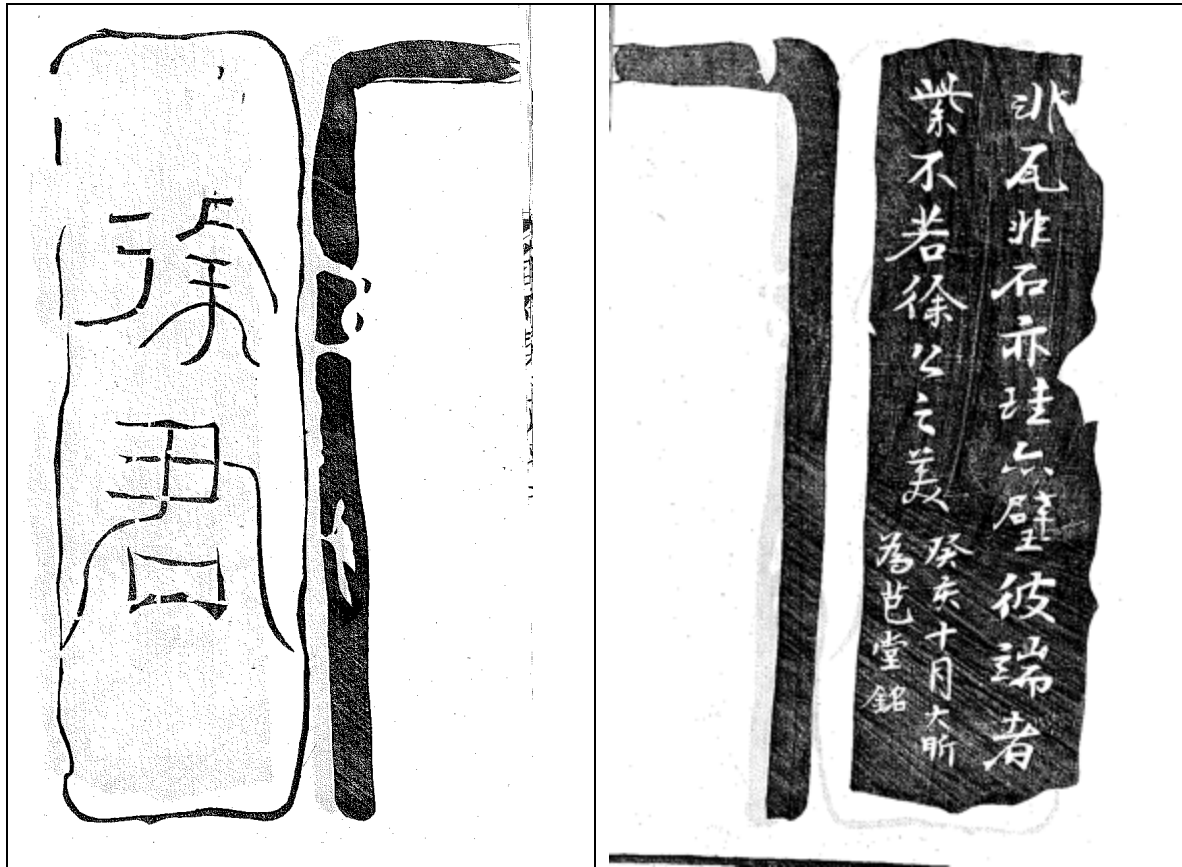 徐君
非瓦非石亦珪亦璧彼端者
紫不若徐公之美
癸亥十月大昕
為芑堂銘